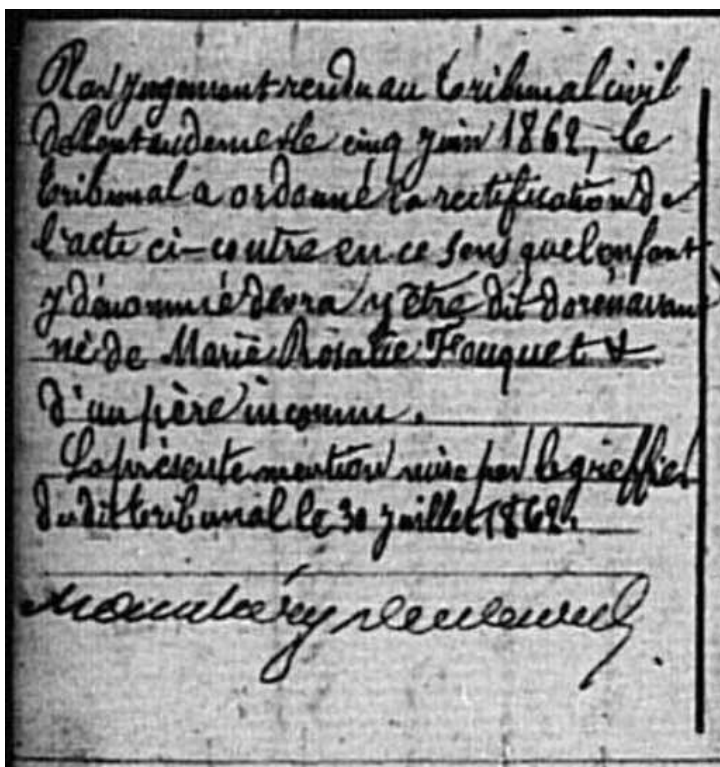 Par jugement rendu au tribunal civil
de Pontaudemer le cinq juin 1862, le
tribunal a ordonné la rectification de
l'acte ci-contre en ce sens que l'enfant
y dénommé devra y être dit dorénavant
né de Marie Rosalie Fouquet &
d'un père inconnu.
La présente mention mise par le greffier
du dit tribunal le 30 juillet 1862.